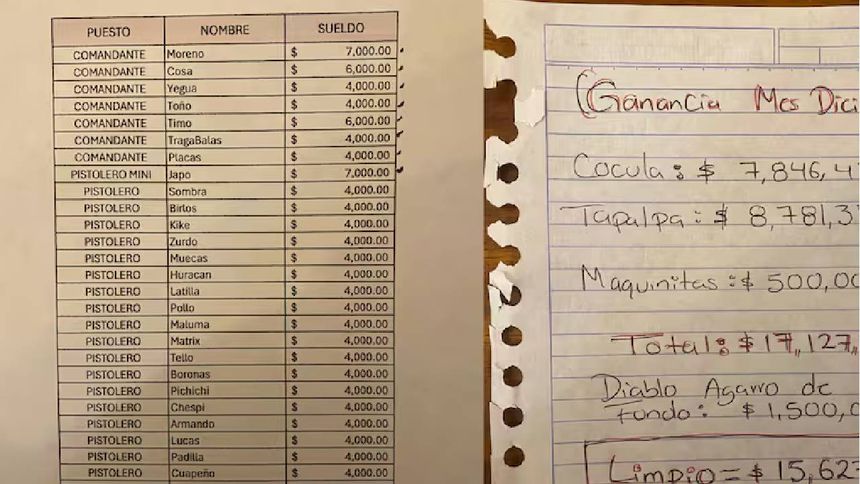 PUESTO NOMBRE SUELDO
COMANDANTE Moreno $ 7,000.00
COMANDANTE Cosa $ 6,000.00
COMANDANTE Yegua $ 4,000.00
COMANDANTE Toño $ 4,000.00
COMANDANTE Timo $ 6,000.00
COMANDANTE TragaBalas $ 4,000.00
COMANDANTE Placas $ 4,000.00
PISTOLERO MINI Japo $ 7,000.00
PISTOLERO Sombra $ 4,000.00
PISTOLERO Birlos $ 4,000.00
PISTOLERO Kike $ 4,000.00
PISTOLERO Zurdo $ 4,000.00
PISTOLERO Muecas $ 4,000.00
PISTOLERO Huracan $ 4,000.00
PISTOLERO Latilla $ 4,000.00
PISTOLERO Pollo $ 4,000.00
PISTOLERO Maluma $ 4,000.00
PISTOLERO Matrix $ 4,000.00
PISTOLERO Tello $ 4,000.00
PISTOLERO Boronas $ 4,000.00
PISTOLERO Pichichi $ 4,000.00
PISTOLERO Chespi $ 4,000.00
PISTOLERO Armando $ 4,000.00
PISTOLERO Lucas $ 4,000.00
PISTOLERO Padilla $ 4,000.00
PISTOLERO Cuapeño $ 4,000.00
(Ganancia Mes Dici
Cocula: $ 7,846,4
Tapalpa: $ 8,781,3
Maquinitas: $ 500,00
Total: $ 17,,127,
Diablo Agarro de
Fondo: $ 1,500,0
Limpio = $ 15,627